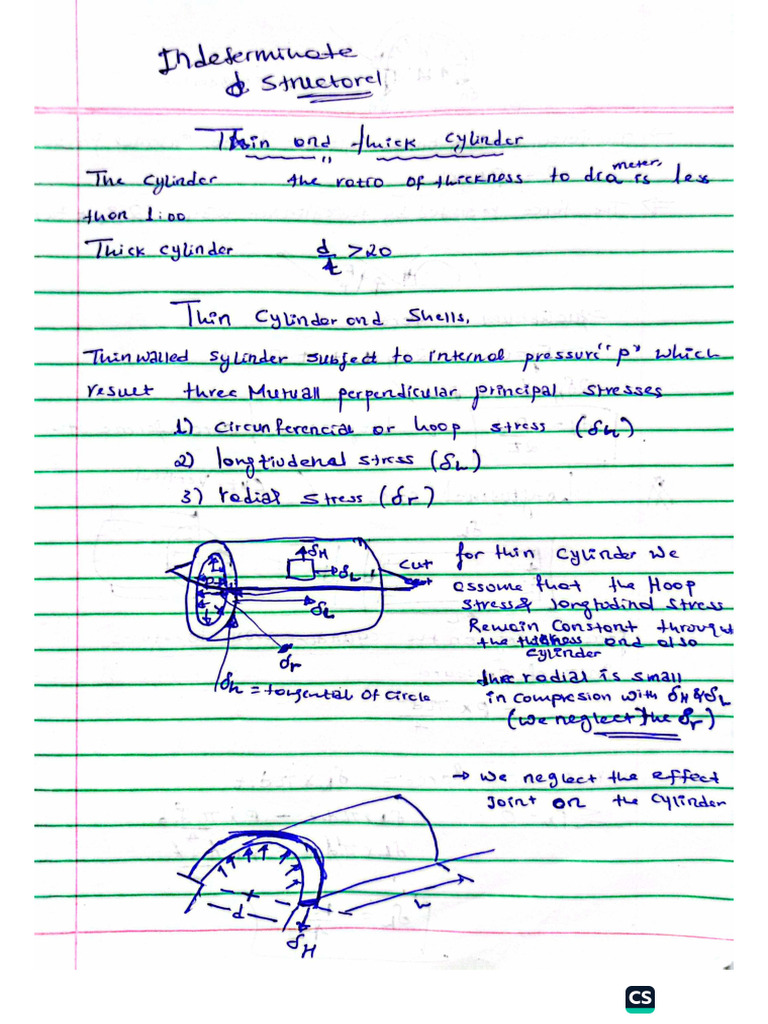 Indeterminate
& Structorel
Thin and thick cylinder
The cylinder the ratio of thickness to diameter is less
than 1:00
Thick cylinder d/t >20
Thin Cylinder and Shells,
Thin walled sylinder subject to internal pressure "P" which
result three Mutuall perpendicular principal stresses
1) circunferencial or hoop stress (δh)
2) longtiudenal stress (δL)
3) radial stress (δr)
δH
δL
cut
P
δL
δr
δh = tangental of circle
for thin cylinder we
assume that the Hoop
stress & longtudinal stress
Remain Constant througt
the thickness and also
cylinder
the radial is small
in compresion with δH & δL
(we neglect the δr)
→ we neglect the effect
Joint on the cylinder
d
L
δH
CS